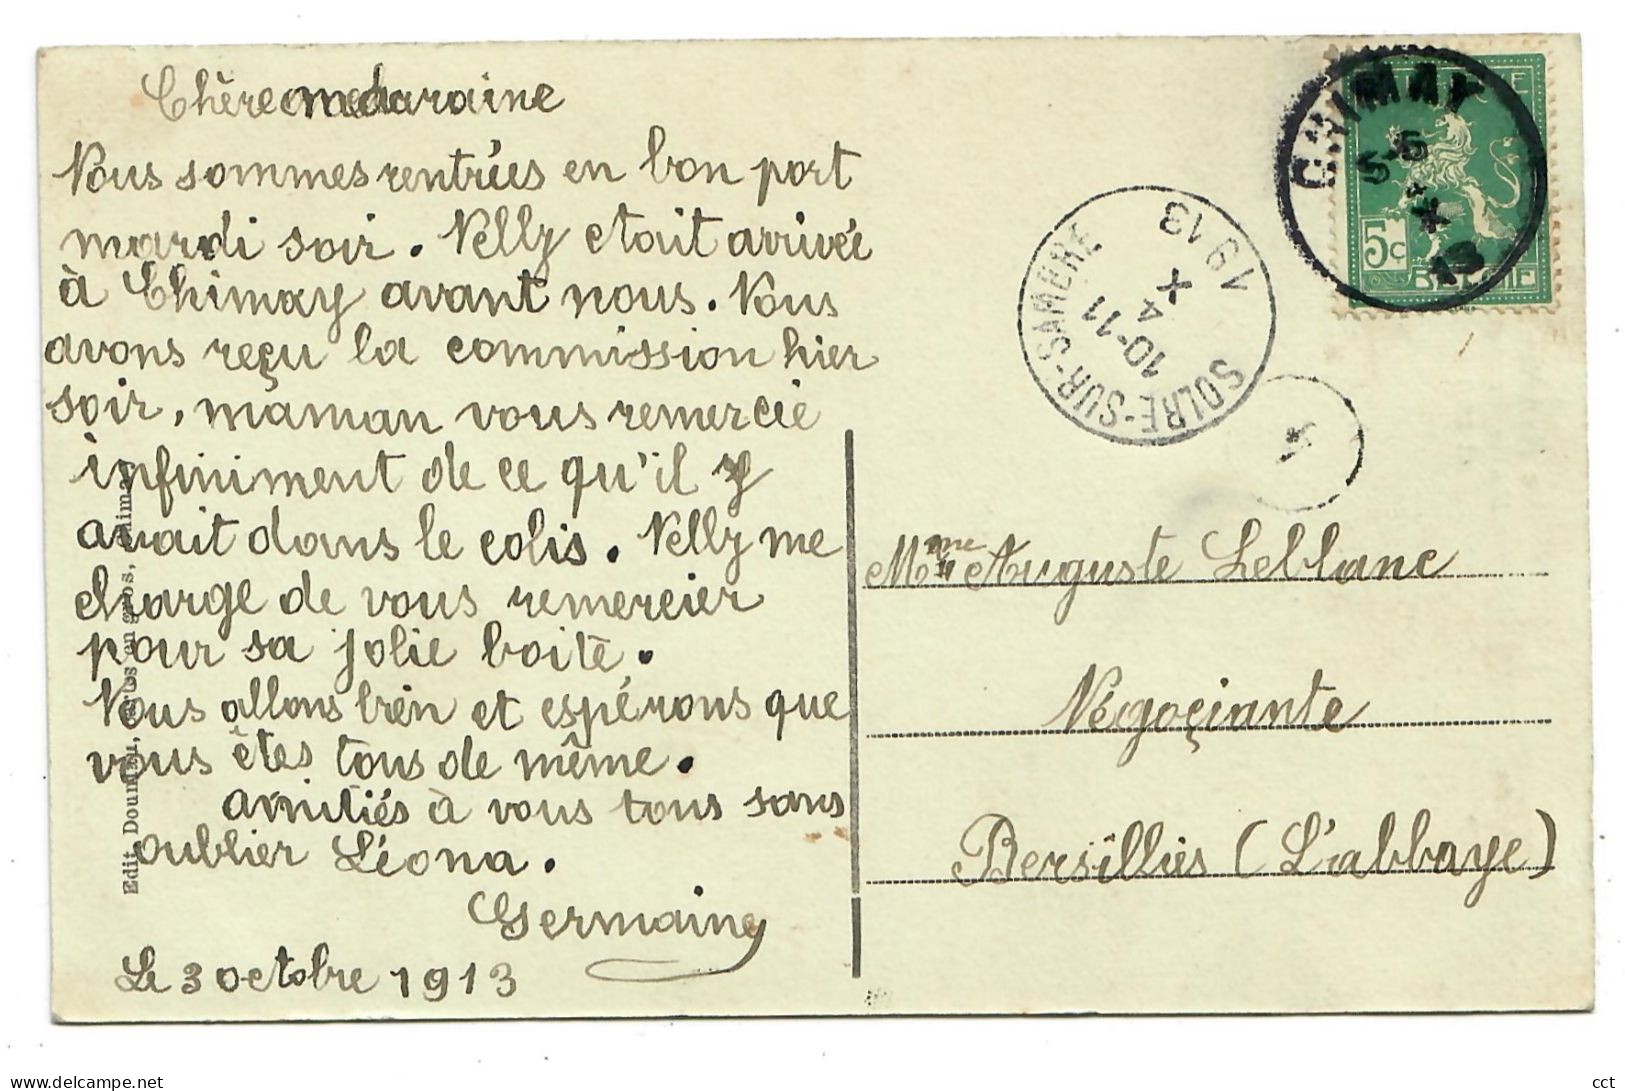 Chère maraine
Nous sommes rentrées en bon port
mardi soir. Nelly etait arrivée
à Chimay avant nous. Nous
avons reçu la commission hier
soir, maman vous remercie
infiniment de ce qu'il y
avait dans le colis. Nelly me
charge de vous remercier
pour sa jolie boite.
Nous allons bien et espérons que
vous êtes tous de même.
amitiés à vous tous sans
oublier Léona.
Germaine
Le 3 octobre 1913
Edit. en gros, Chimay
CHIMAY
5-6
4
X
13
5c
BELGIË
SOLRE-SUR-SAMBRE
10-11
4
X
1913
4
Mme Auguste Leblanc
Négoçiante
Bersillies (L'abbaye)
delcampe.net
cct